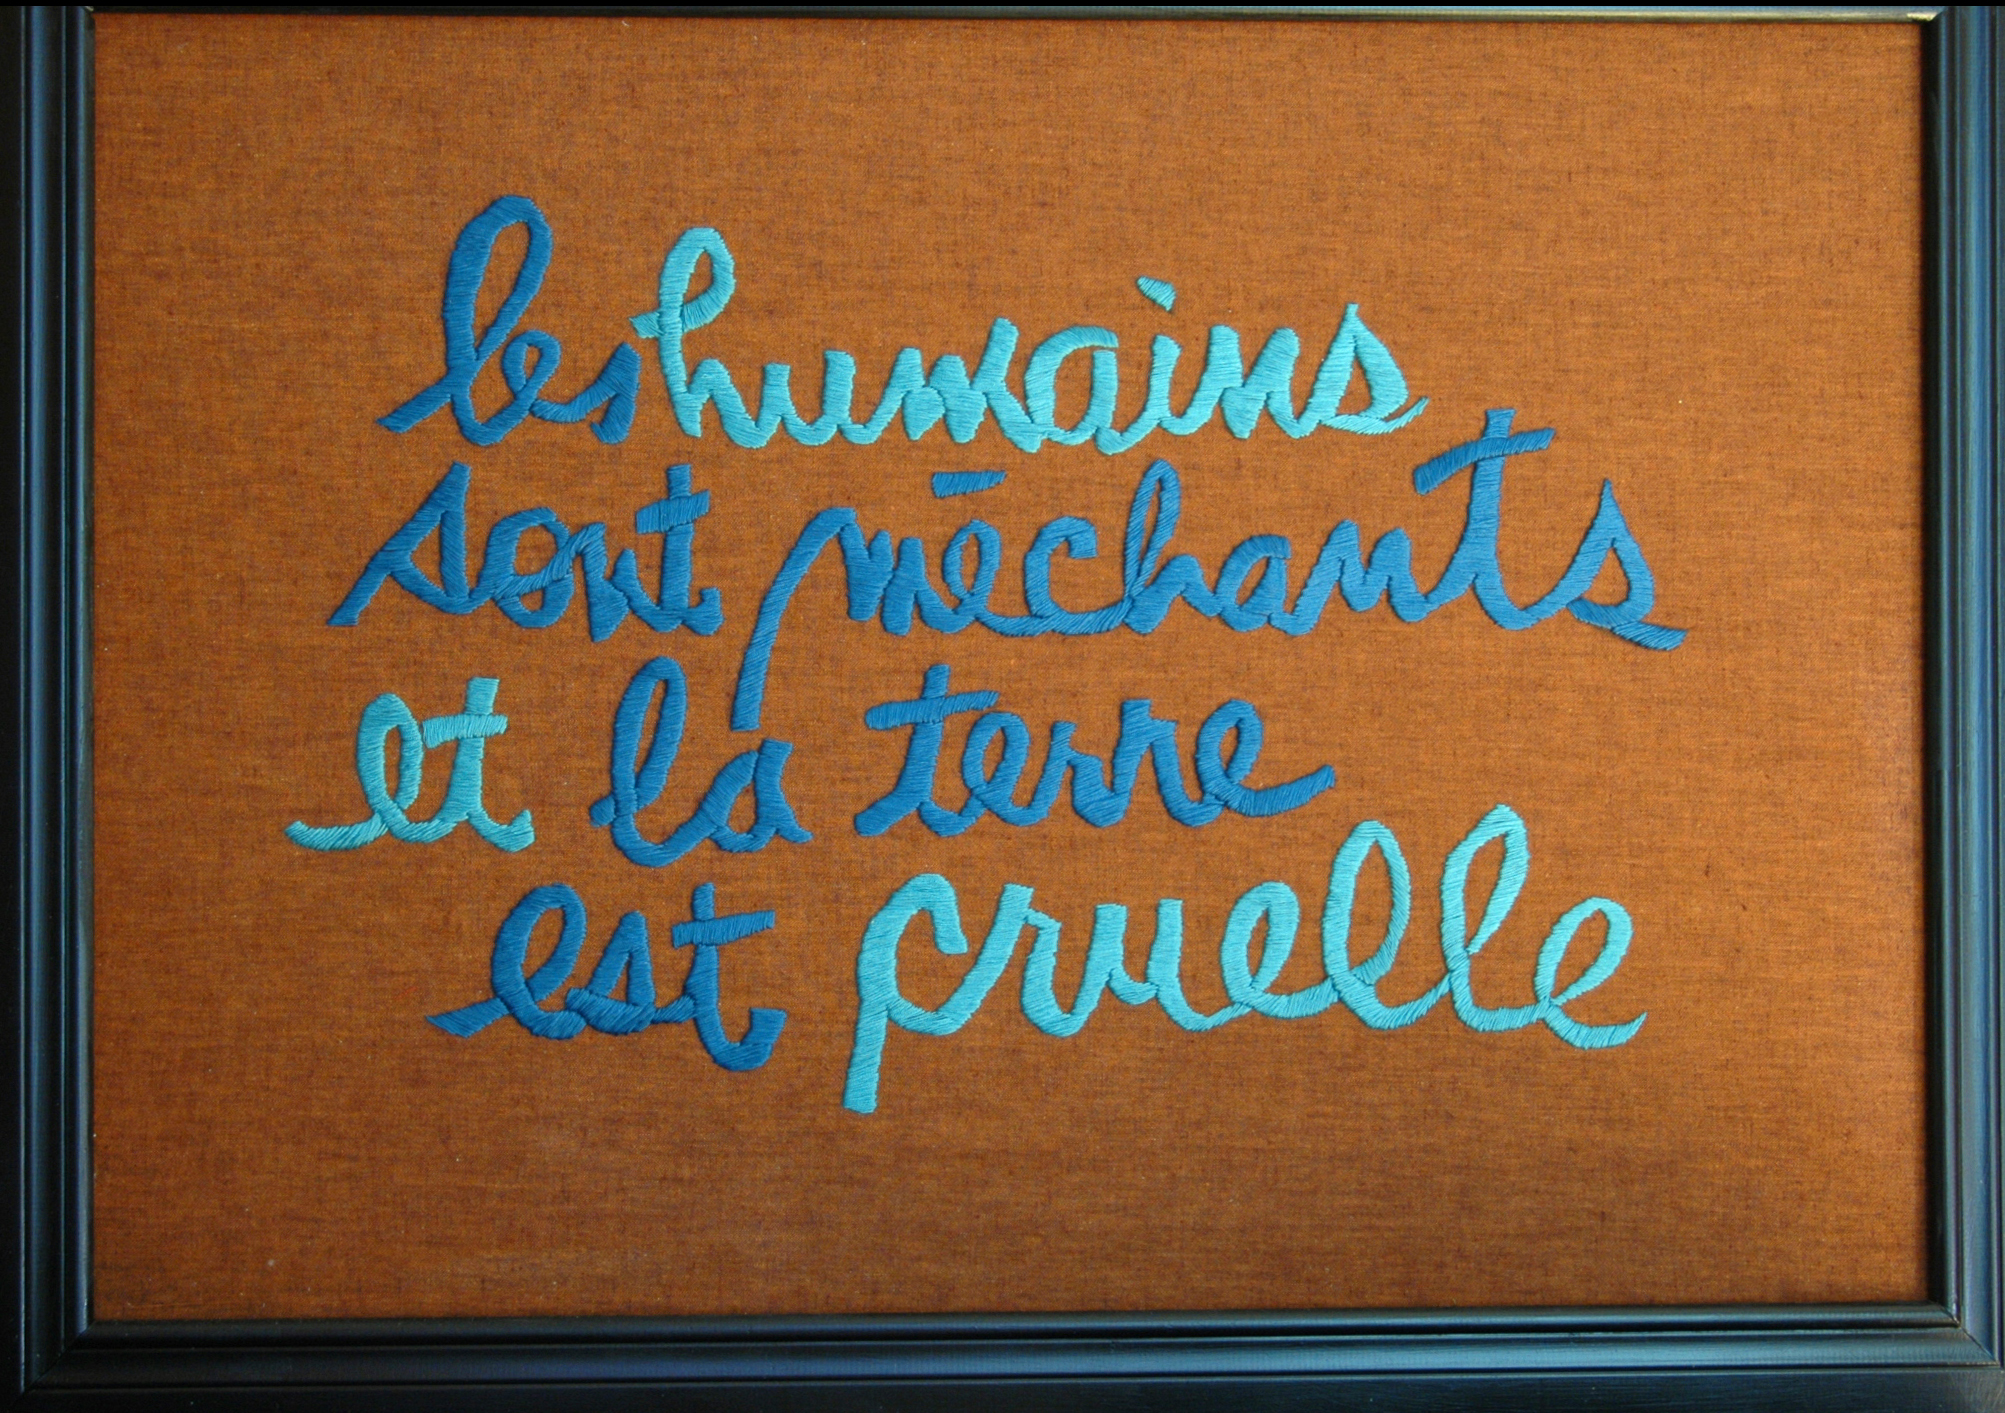 les humains
sont méchants
et la terre
est cruelle